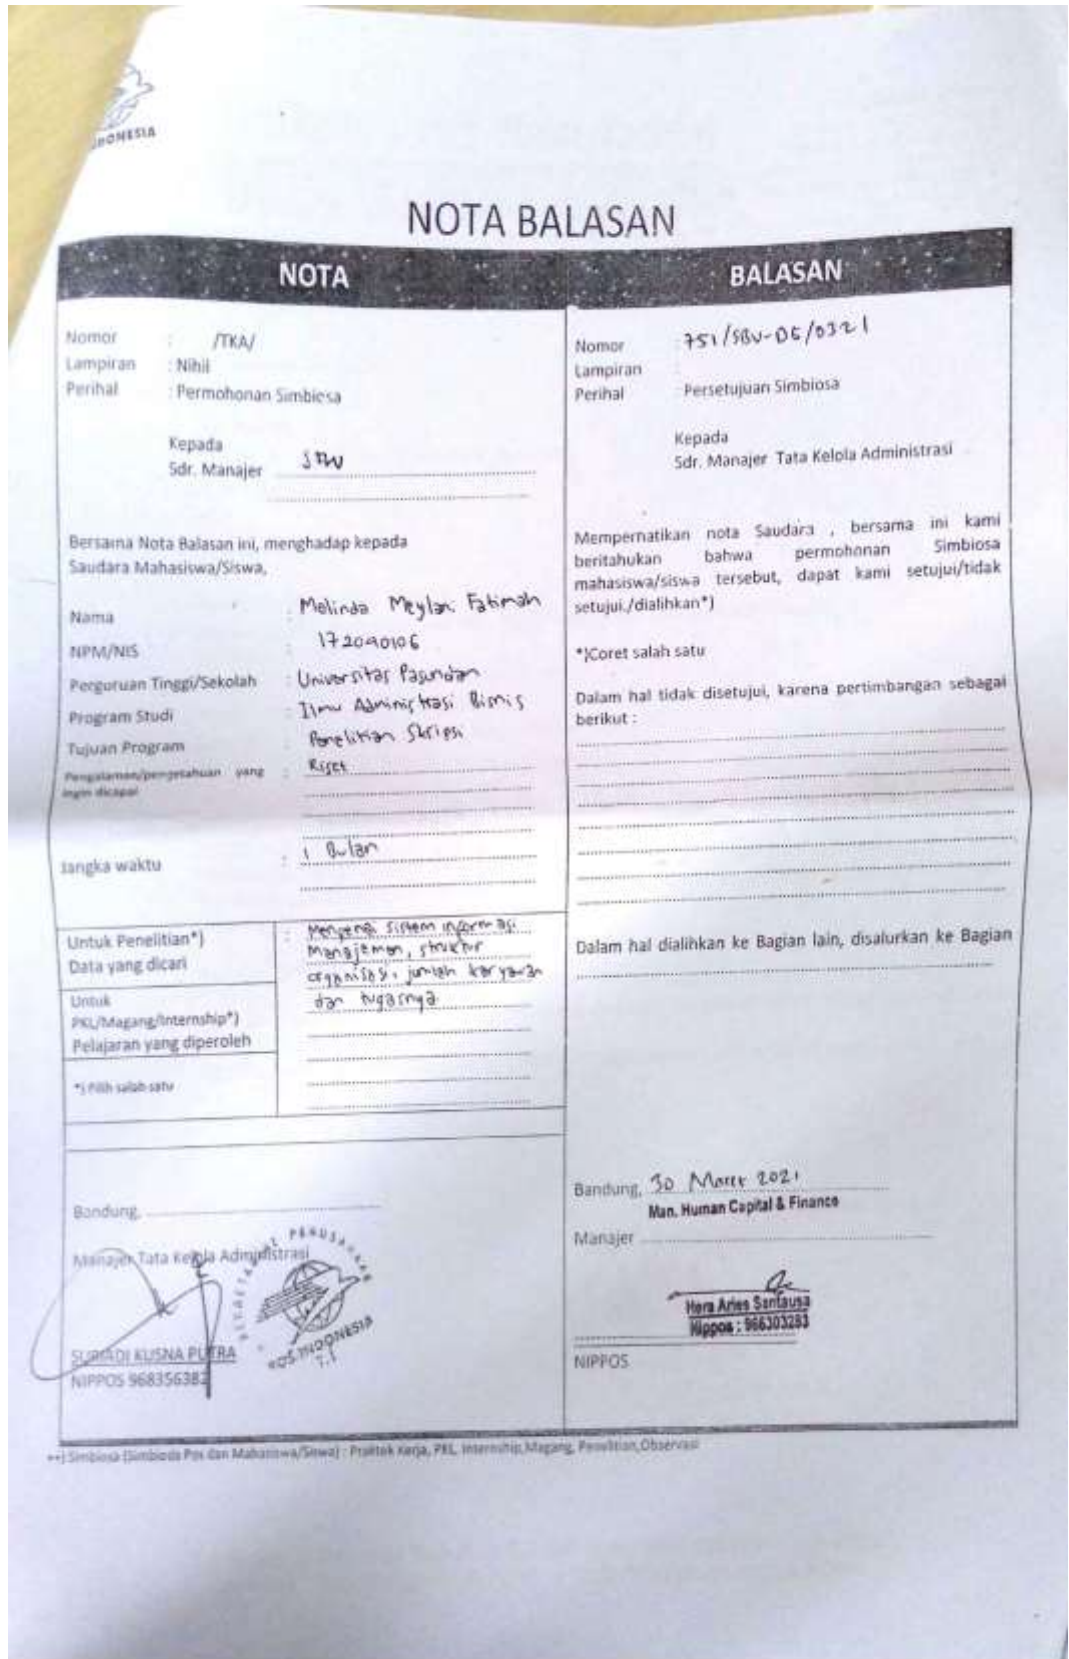 INDONESIA
NOTA BALASAN
NOTA
Nomor : /TKA/
Lampiran : Nihil
Perihal : Permohonan Simbiosa
Kepada
Sdr. Manajer
Bersama Nota Balasan ini, menghadap kepada
Saudara Mahasiswa/Siswa,
Nama : Melinda Meylani Fatimah
NPM/NIS 172040106
Perguruan Tinggi/Sekolah : Universitas Pasundan
Program Studi : Ilmu Administrasi Bisnis
Tujuan Program : Penelitian Skripsi
Pengalaman/pengetahuan yang : Riset
ingin dicapai
Jangka waktu : 1 Bulan
Untuk Penelitian*)
Data yang dicari
: Mengenai sistem informasi
manajemen, struktur
organisasi, jumlah karyawan
dan tugasnya
Untuk
PKL/Magang/Internship*)
Pelajaran yang diperoleh
*) Pilih salah satu
Bandung,
Manajer Tata Kelola Administrasi
POS INDONESIA
SURIADI KUSNA PUTRA
NIPPOS 968356382
BALASAN
Nomor : 751/SBU-DS/0321
Lampiran :
Perihal : Persetujuan Simbiosa
Kepada
Sdr. Manajer Tata Kelola Administrasi
Mempernatikan nota Saudara , bersama ini kami
beritahukan bahwa permohonan Simbiosa
mahasiswa/siswa tersebut, dapat kami setujui/tidak
setujui./dialihkan*)
*)Coret salah satu
Dalam hal tidak disetujui, karena pertimbangan sebagai
berikut :
Dalam hal dialihkan ke Bagian lain, disalurkan ke Bagian
Bandung, 30 Maret 2021
Man. Human Capital & Finance
Manajer
Hera Aries Santausa
Nippos : 966303283
NIPPOS
**) Simbiosa (Simbiosis Pos dan Mahasiswa/Siswa) : Praktek Kerja, PKL, Internship,Magang, Penelitian,Observasi